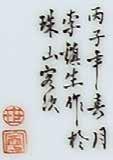 丙子年春月
李慎生作於
珠山客次